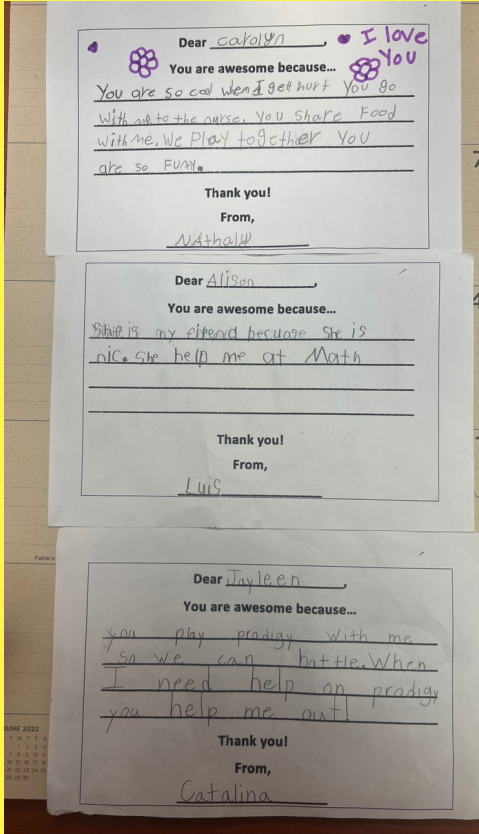 Dear Carolyn,
I love
You
You are awesome because...
You are so cool Wen I gett hurt You go
With me to the nurse. You share Food
With me. We Play together You
are so Funy.
Thank you!
From,
Nathaly
Dear Alison,
You are awesome because...
She is my firend becuase she is
nic. She help me at Math
Thank you!
From,
Luis
Father's
Dear Jayleen,
You are awesome because...
you play prodigy with me
so we can battle. When
I need help on prodigy
you help me out!
Thank you!
From,
Catalina
JUNE 2022